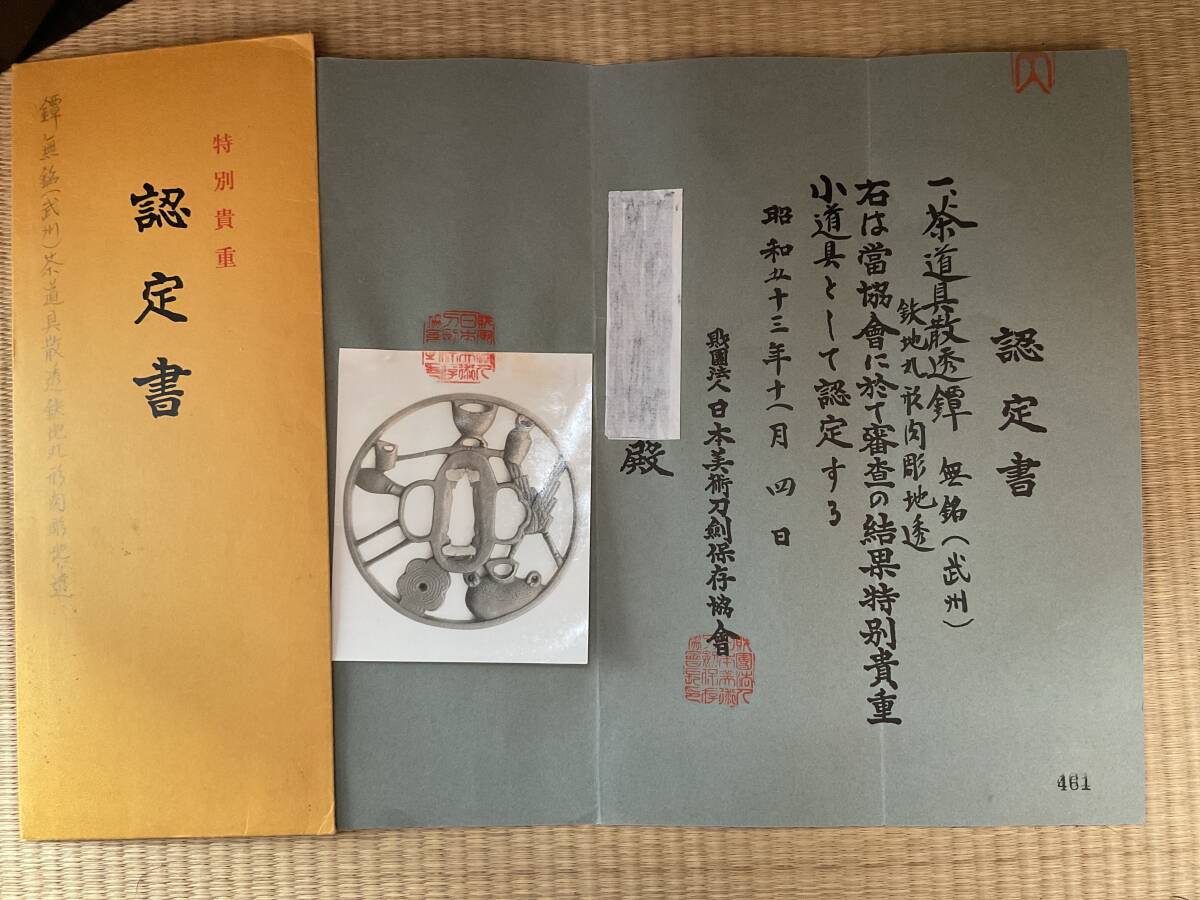 認定書
一、茶道具散透鐔 無銘(武州)
鉄地丸形肉彫地透
右は當協會に於て審査の結果特別貴重
小道具として認定する
昭和五十三年十一月四日
財團法人日本美術刀劍保存協會
殿
461
特別貴重
認定書
鐔 無銘(武州)茶道具散透鉄地丸形肉彫地透